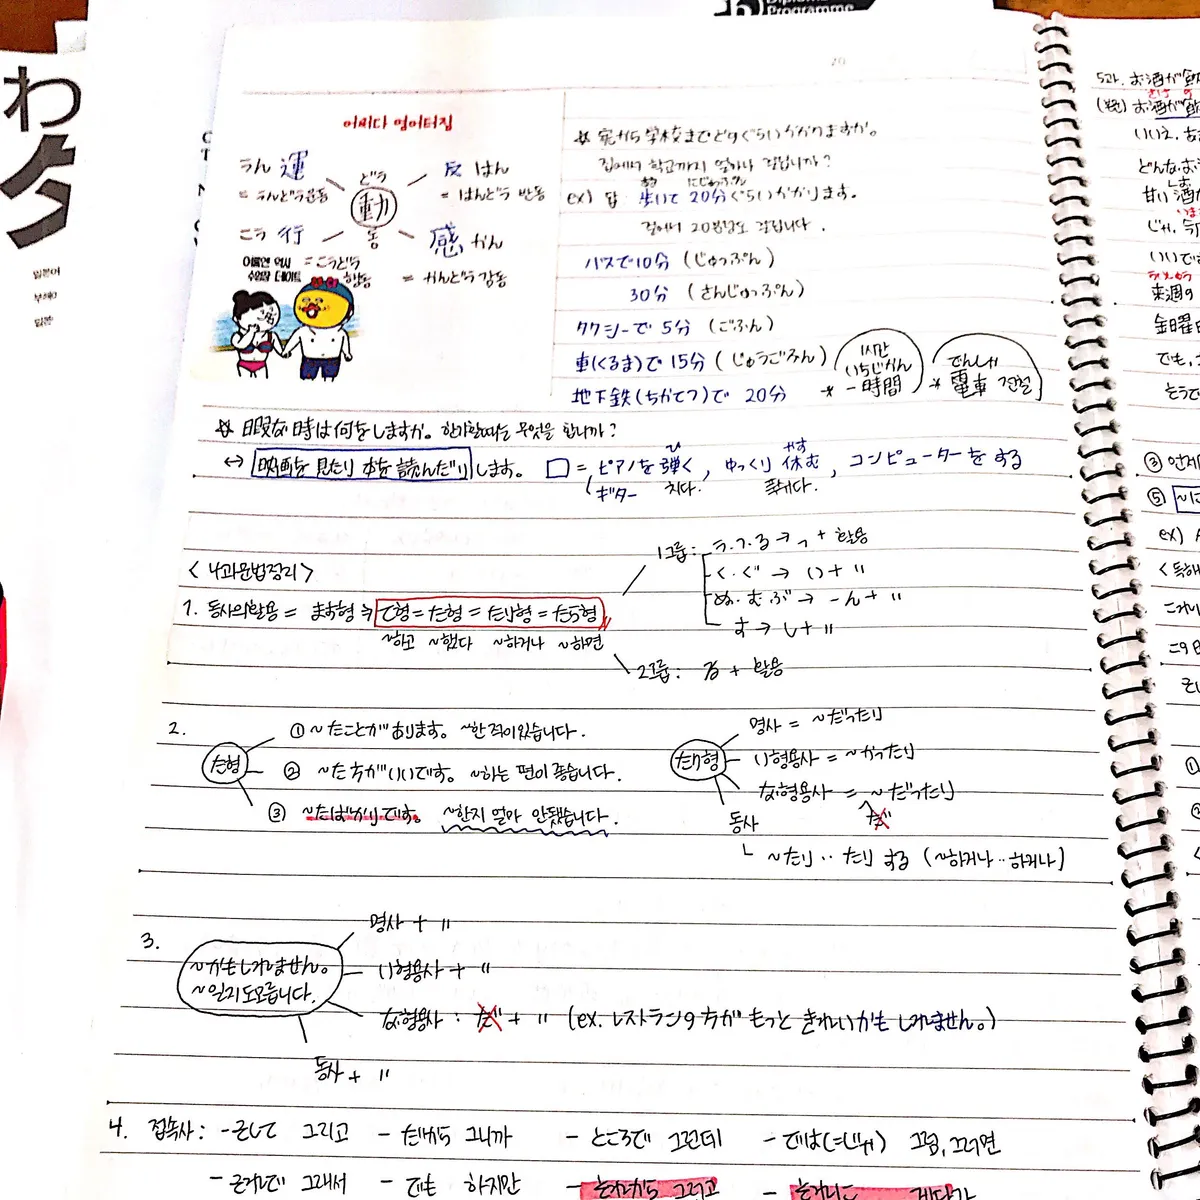 Programme
わ
ク
일본어
20
어쩌다 얻어터짐
うん 運
= うんどう 운동
どう
動
동
反 はん
= はんどう 반동
こう 行
= こうどう 행동
感 かん
= かんどう 감동
☆ 家から学校までどのぐらいかかりますか。
집에서 학교까지 얼마나 걸립니까?
ex) 답 歩いて 20分ぐらいかかります。
にじゅっぷん
집에서 20분정도 걸립니다.
バスで10分 (じゅっぷん)
30分 (さんじゅっぷん)
タクシーで 5分 (ごふん)
車(くるま)で 15分 (じゅうごふん)
地下鉄(ちかてつ)で 20分
1시간
いちじかん
* 一時間
でんしゃ
* 電車 전철
☆ 暇な時は何をしますか。 한가할때는 무엇을 합니까?
↔ 映画を見たり 本を読んだり します。 □ = ピアノを弾く, ゆっくり 休む, コンピューターをする
ひ
やす
ギター 치다.
푹쉬다.
<4과문법정리>
1. 동사의활용 = ます형 → て형 = た형 = たり형 = たら형
~하고 ~했다 ~하거나 ~하면
1그룹: う・つ・る → っ + 활용
く・ぐ → い + 〃
ぬ・む・ぶ → ーん + 〃
す → し + 〃
2그룹: る + 활용
2.
た형
① ~たことがあります。 ~한 적이있습니다.
② ~た方がいいです。 ~하는 편이 좋습니다.
③ ~たばかりです。 ~한지 얼마 안됐습니다.
たり형
명사 = ~だったり
い형용사 = ~かったり
な형용사 = ~だったり
だ
동사
└ ~たり ‥ たり する (~하거나‥하거나)
3.
~かもしれません。
~일지도모릅니다.
명사 + 〃
い형용사 + 〃
な형용사 : だ + 〃 (ex. レストランの方が もっと きれいかも しれません。)
동사 + 〃
4. 접속사: - そして 그리고 - だから 그니까 - ところで 그런데 - では(=じゃ) 그럼, 그러면
- それで 그래서 - でも 하지만 - それから 그리고 - それに 게다가
5과. お酒が飲
(本文) お酒が飲
いいえ、あ
どんなお
甘い酒
じゃ、今
いいで
来週の
らいしゅう
金曜日
でも、
そうで
③ 언제
⑤ ~に
ex)
<독해
これ
この
①
②